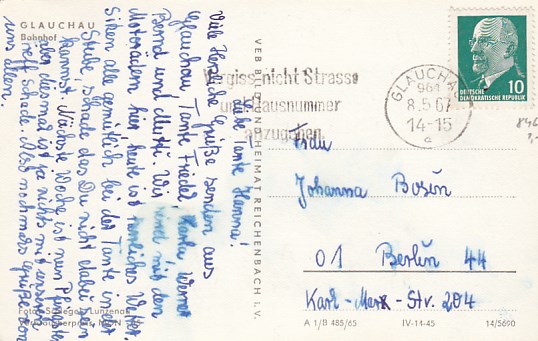 GLAUCHAU
Bahnhof
Liebe Tante Hanna!
Viele Herzliche Grüße senden aus
Glauchau Tante Friedl, Werner
Bernd und Wir sind mit den
Motorrädern hier heute ist herrliches Wetter.
Sitzen alle gemütlich bei der Tante in der
Stube, schade das Du nicht dabei sein
kannst. Nächste Woche ist nun Pfingsten
aber diesmal ist ja nichts mit
Schade. Also nochmals Grüße von
uns allen.
VEB BILD HEIMAT REICHENBACH I. V.
Vergiss nicht Strasse
und Hausnummer
anzugeben
GLAUCHAU
961
8.5.67
14-15
a
10
DEUTSCHE
DEMOKRATISCHE REPUBLIK
Frau
Johanna Bosin
01 Berlin 44
Karl-Marx-Str. 204
Foto: Schlegel, Lunzenau
A 1/B 485/65 IV-14-45 14/5690